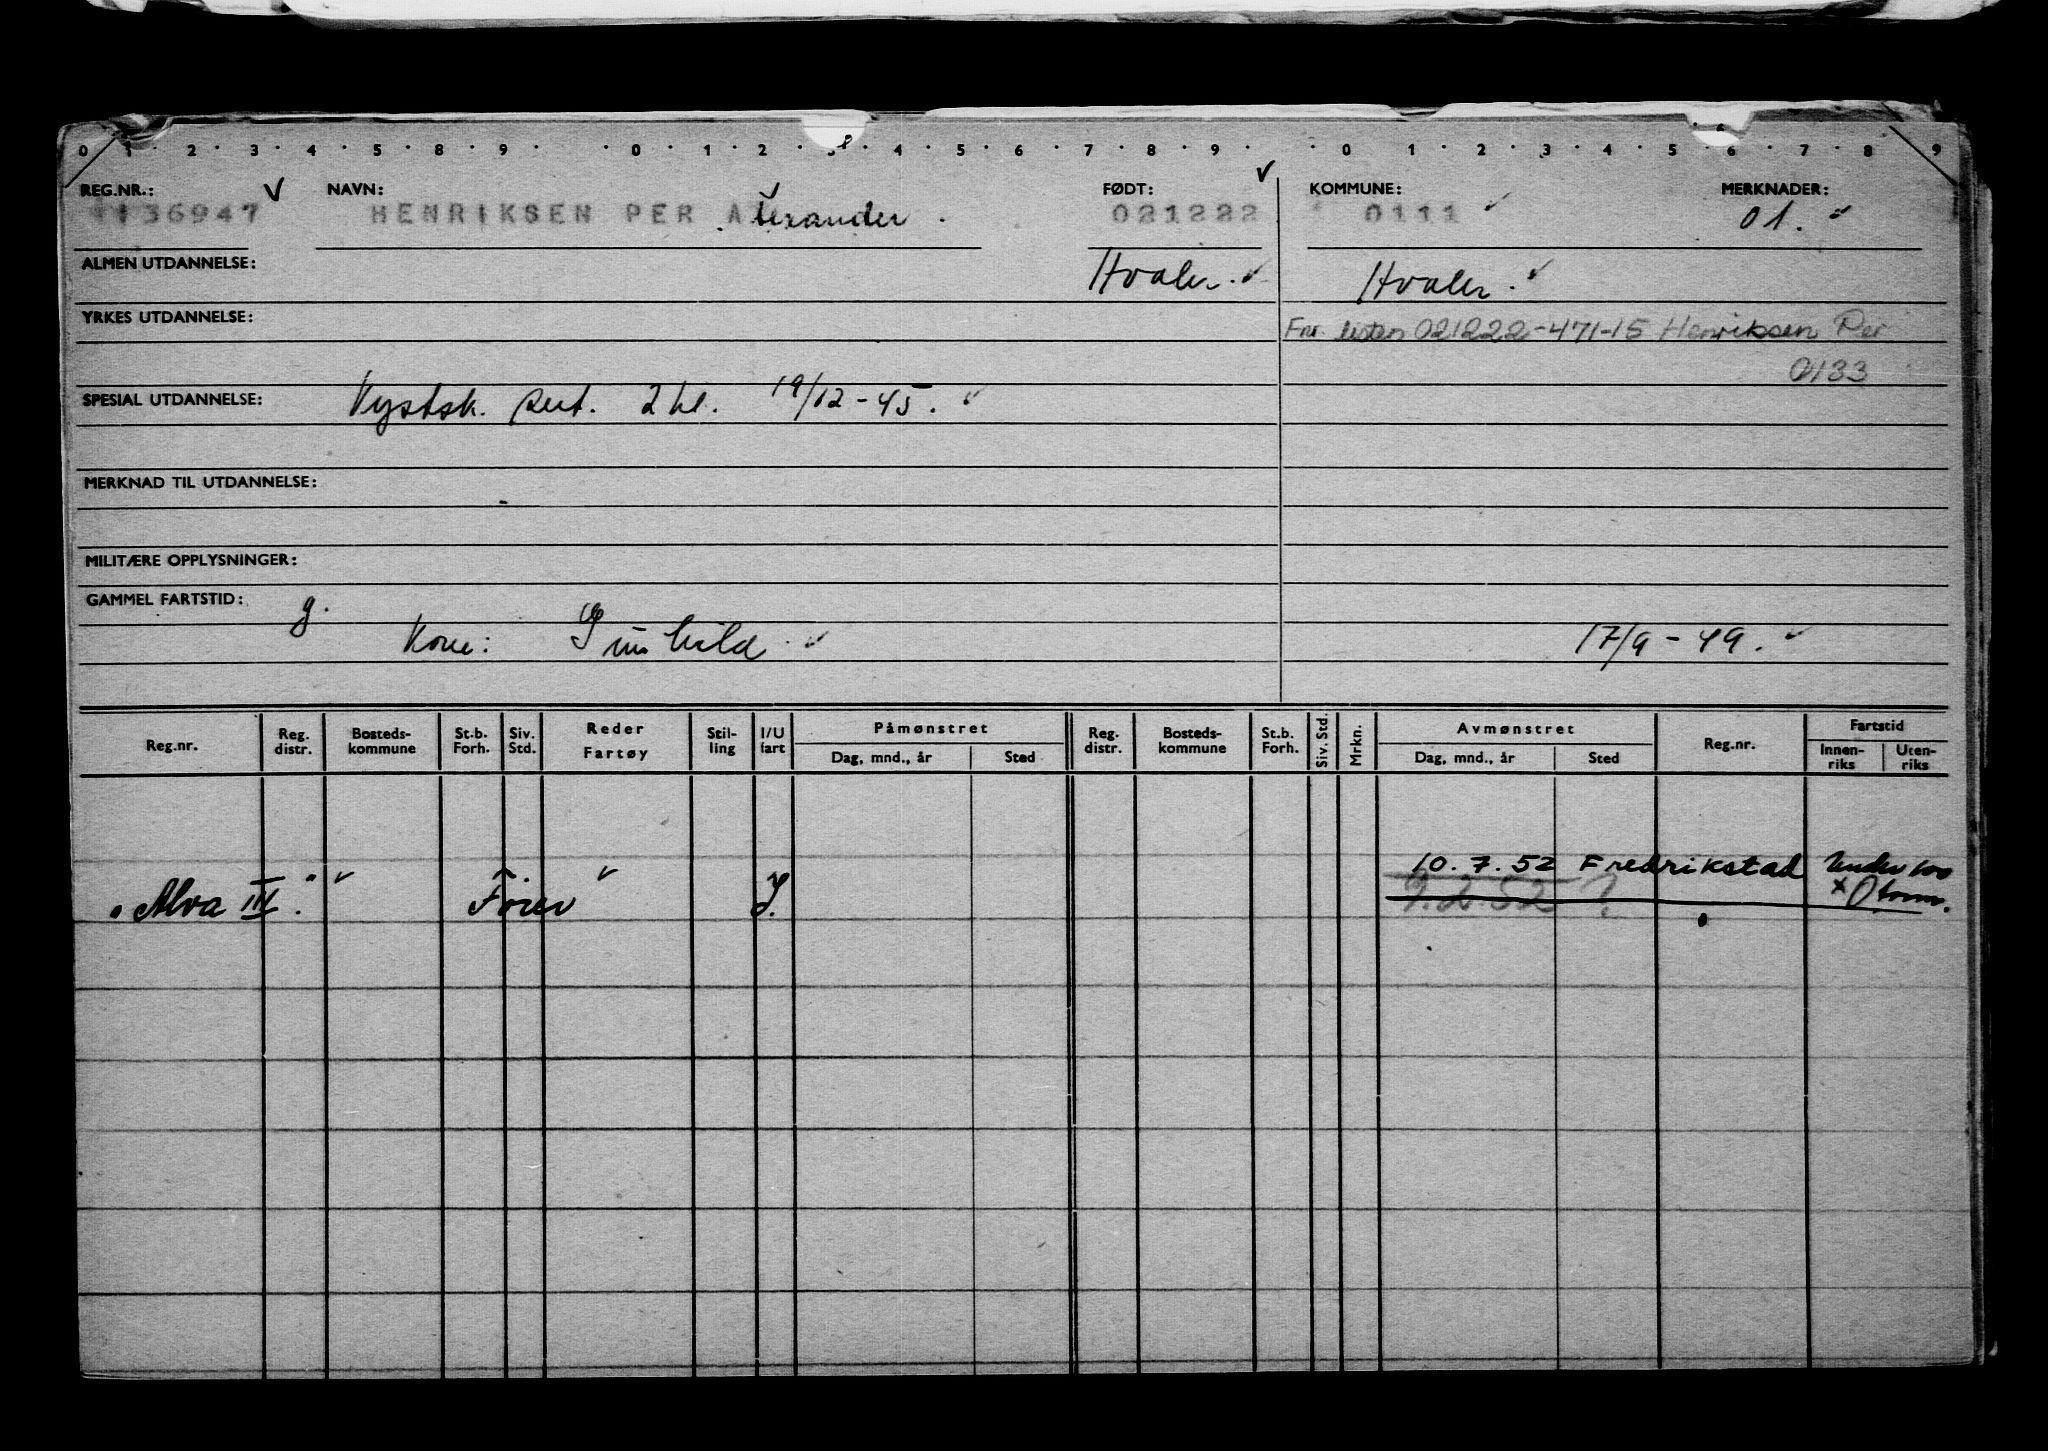 0 · 1 · 2 · 3 · 4 · 5 · 8 · 9 · · 0 · 1 · 2 · 3 · 4 · 5 · 6 · 7 · 8 · 9 · · 0 · 1 · 2 · 3 · 4 · 5 · 6 · 7 · 8 · 9
REG.NR.: NAVN: FØDT: KOMMUNE: MERKNADER:
1136947 HENRIKSEN PER Alexander. 021222 0111 01.
ALMEN UTDANNELSE: Hvaler. Hvaler.
YRKES UTDANNELSE: Fnr. listen 021222-471-15 Henriksen Per
0133
SPESIAL UTDANNELSE: Kystsk. sert. 2 kl. 19/12-45.
MERKNAD TIL UTDANNELSE:
MILITÆRE OPPLYSNINGER:
GAMMEL FARTSTID: g.
Kone: Gunhild 17/9-49.
Reg.nr. Reg. distr. Bosteds-kommune St.b. Forh. Siv. Std. Reder Fartøy Stil-ling I/U fart Påmønstret Dag, mnd., år Sted Reg. distr. Bosteds-kommune St.b. Forh. Siv. Std. Mrkn. Avmønstret Dag, mnd., år Sted Reg.nr. Fartstid Innen-riks Uten-riks
10.7.52 Fredrikstad Under 100
"Alva III." Fører J. 9.2.52 ? tonn.